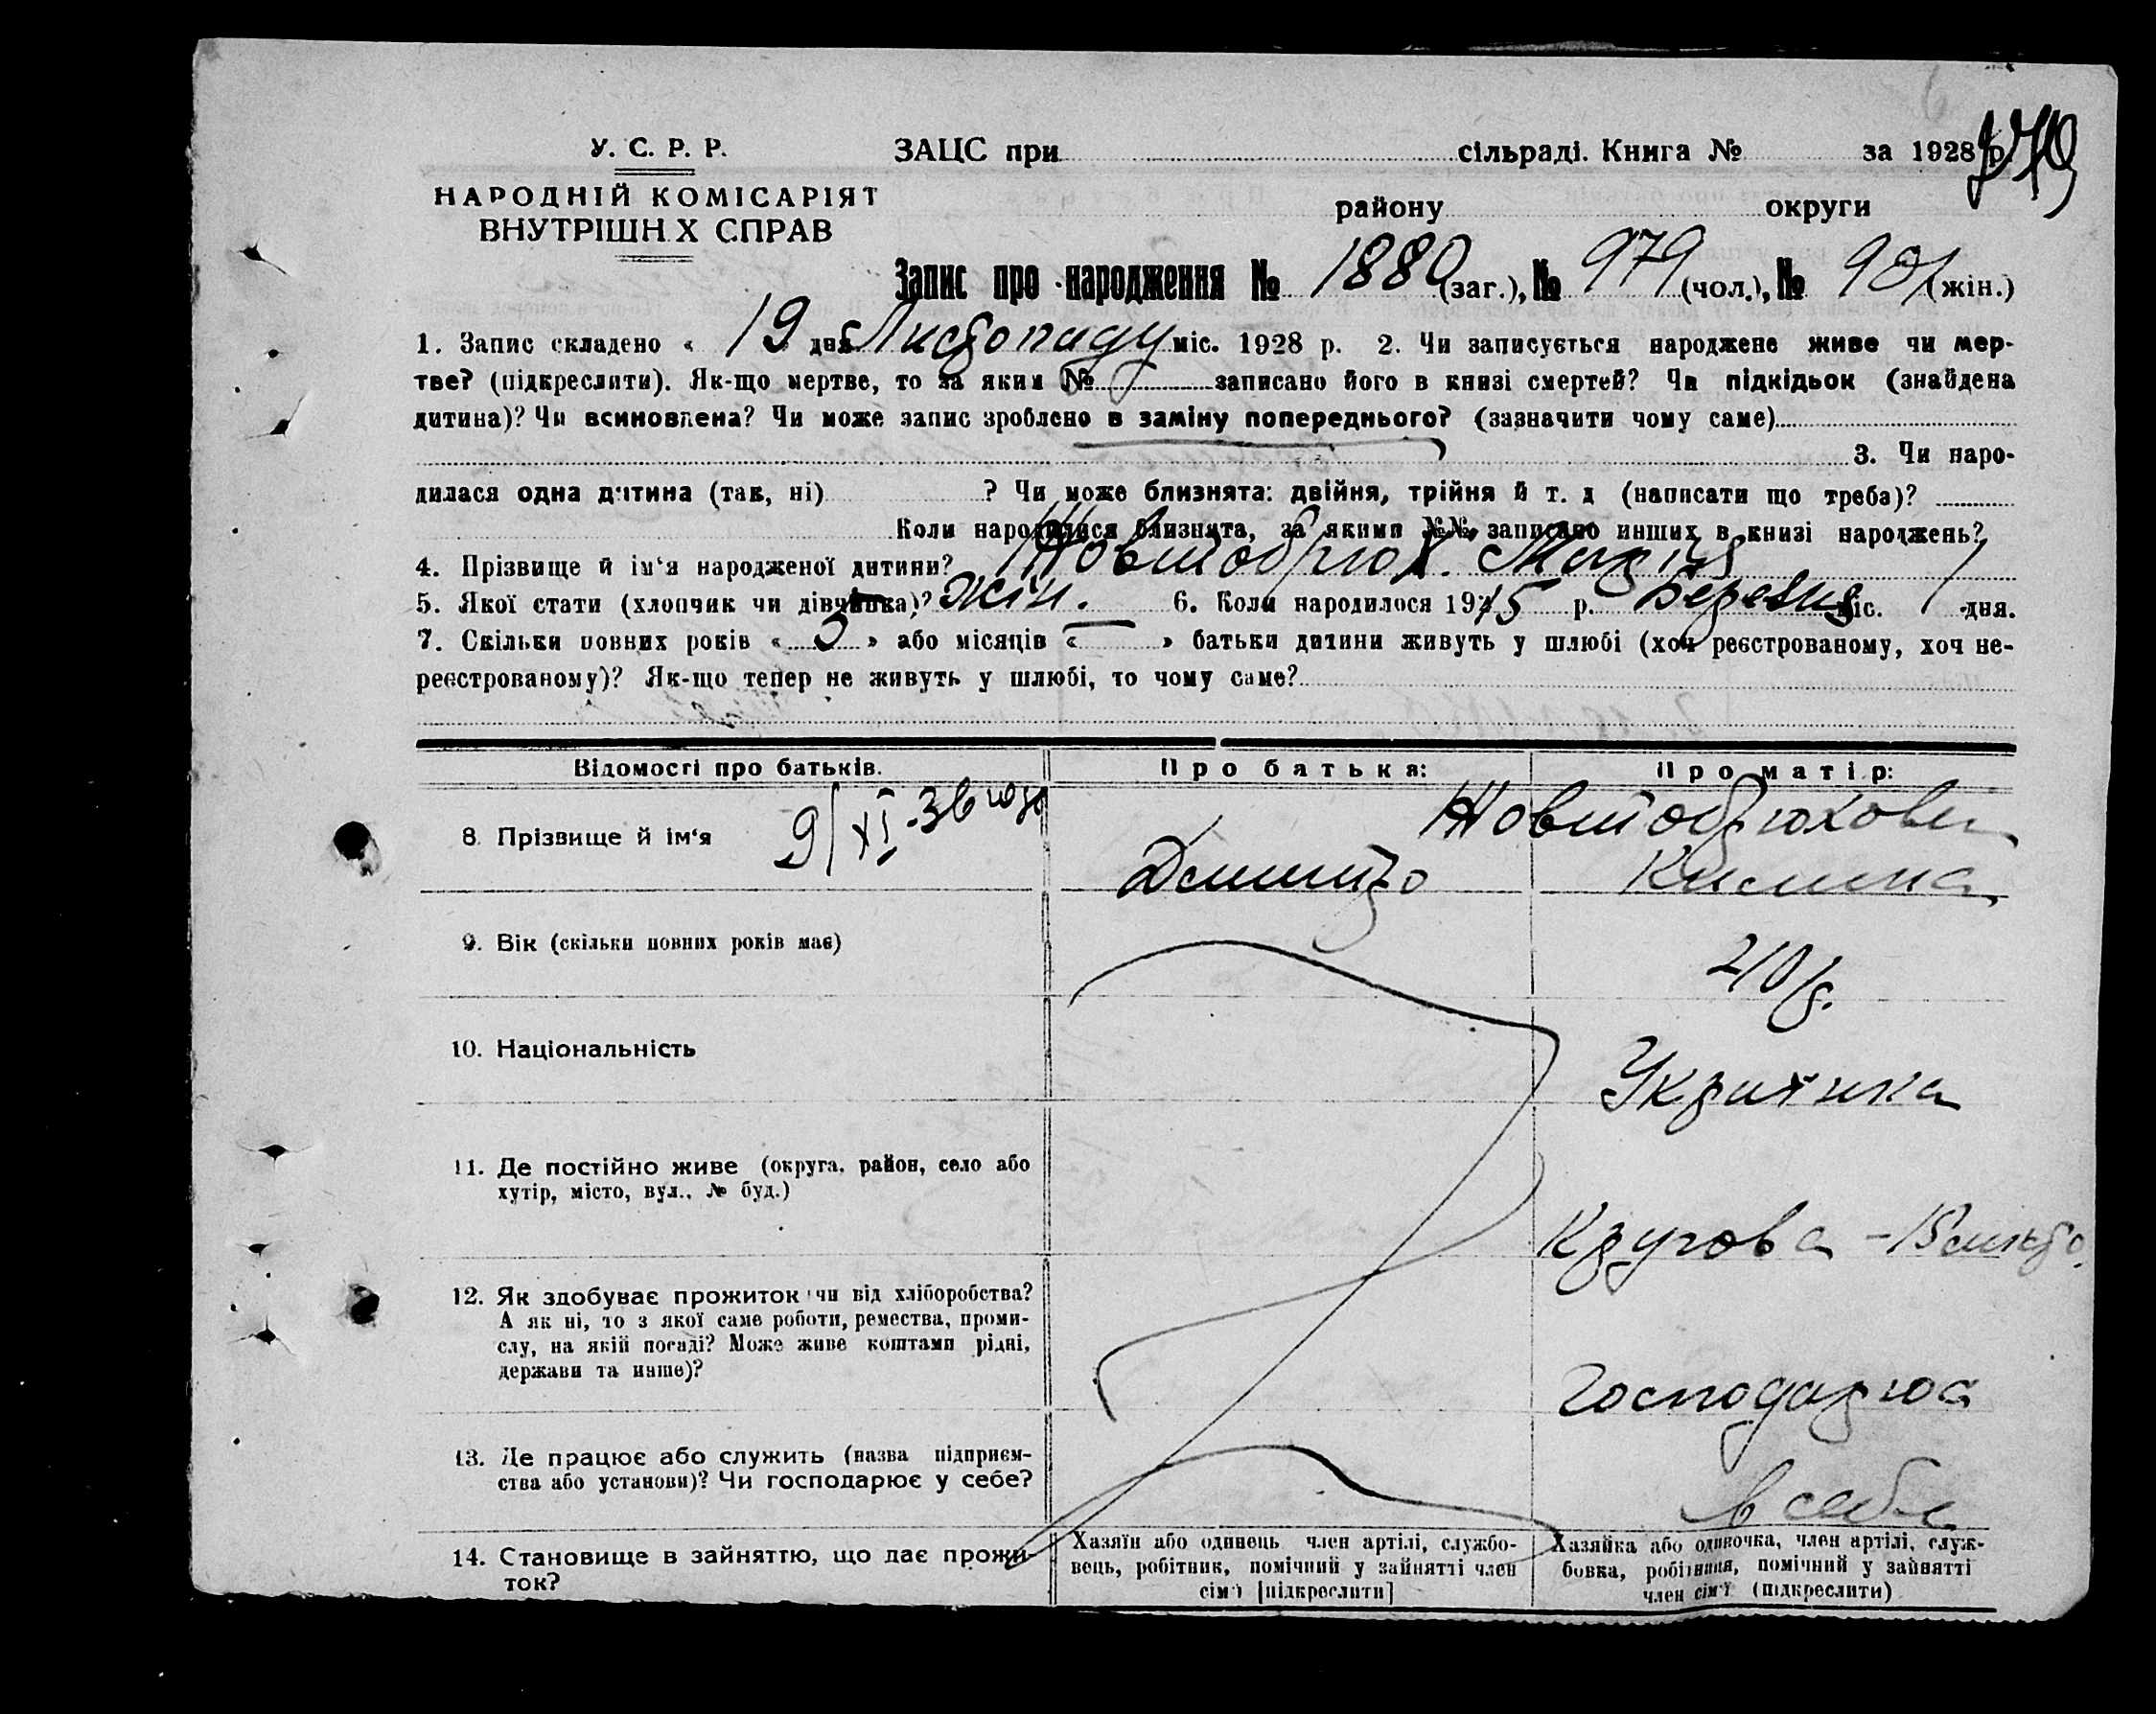 У. С. Р. Р.
НАРОДНІЙ КОМІСАРІЯТ
ВНУТРІШН Х СПРАВ
ЗАЦС при сільраді. Книга № за 1928 р.
району округи
Запис про народження № 1880 (заг.), № 979 (чол.), № 901 (жін.)
1. Запис складено « 19 дня Листопаду міс. 1928 р. 2. Чи записується народжене живе чи мер-
тве? (підкреслити). Як-що мертве, то за яким № записано його в книзі смертей? Чи підкідьок (знайдена
дитина)? Чи всиновлена? Чи може запис зроблено в заміну попереднього? (зазначити чому саме)
3. Чи наро-
дилася одна дитина (так, ні) ? Чи може близнята: двійня, трійня й т. д (написати що треба)?
Коли народилися близнята, за якими №№ записано инших в книзі народжень?
4. Прізвище й ім‘я народженої дитини? Жовтобрюх Марія
5. Якої стати (хлопчик чи дівчинка)? жін. 6. Коли народилося 1915 р. Березня міс. 1 дня.
7. Скільки повних років « 5 » або місяців « — » батьки дитини живуть у шлюбі (хоч реєстрованому, хоч не-
реєстрованому)? Як-що тепер не живуть у шлюбі, то чому саме?
Відомості про батьків. Про батька: Про матір:
8. Прізвище й ім‘я 9/XI-36 Жовтобрюхови
Дмитро Килина
9. Вік (скільки повних років має)
10. Національність Українка
11. Де постійно живе (округа, район, село або
хутір, місто, вул., № буд.)
Кругова -
12. Як здобуває прожиток чи від хліборобства?
А як ні, то з якої саме роботи, ремества, проми-
слу, на якій посаді? Може живе коштами рідні,
держави та инше)?
Господарюа
13. Де працює або служить (назва підприєм-
ства або установи)? Чи господарює у себе?
в себе
14. Становище в зайняттю, що дає прожи-
ток?
Хазяїн або одинець член артілі, службо-
вець, робітник, помічний у зайнятті член
сім'ї [підкреслити]
Хазяйка або одиночка, член артілі, служ-
бовка, робітниця, помічний у зайнятті
член сім'ї (підкреслити)